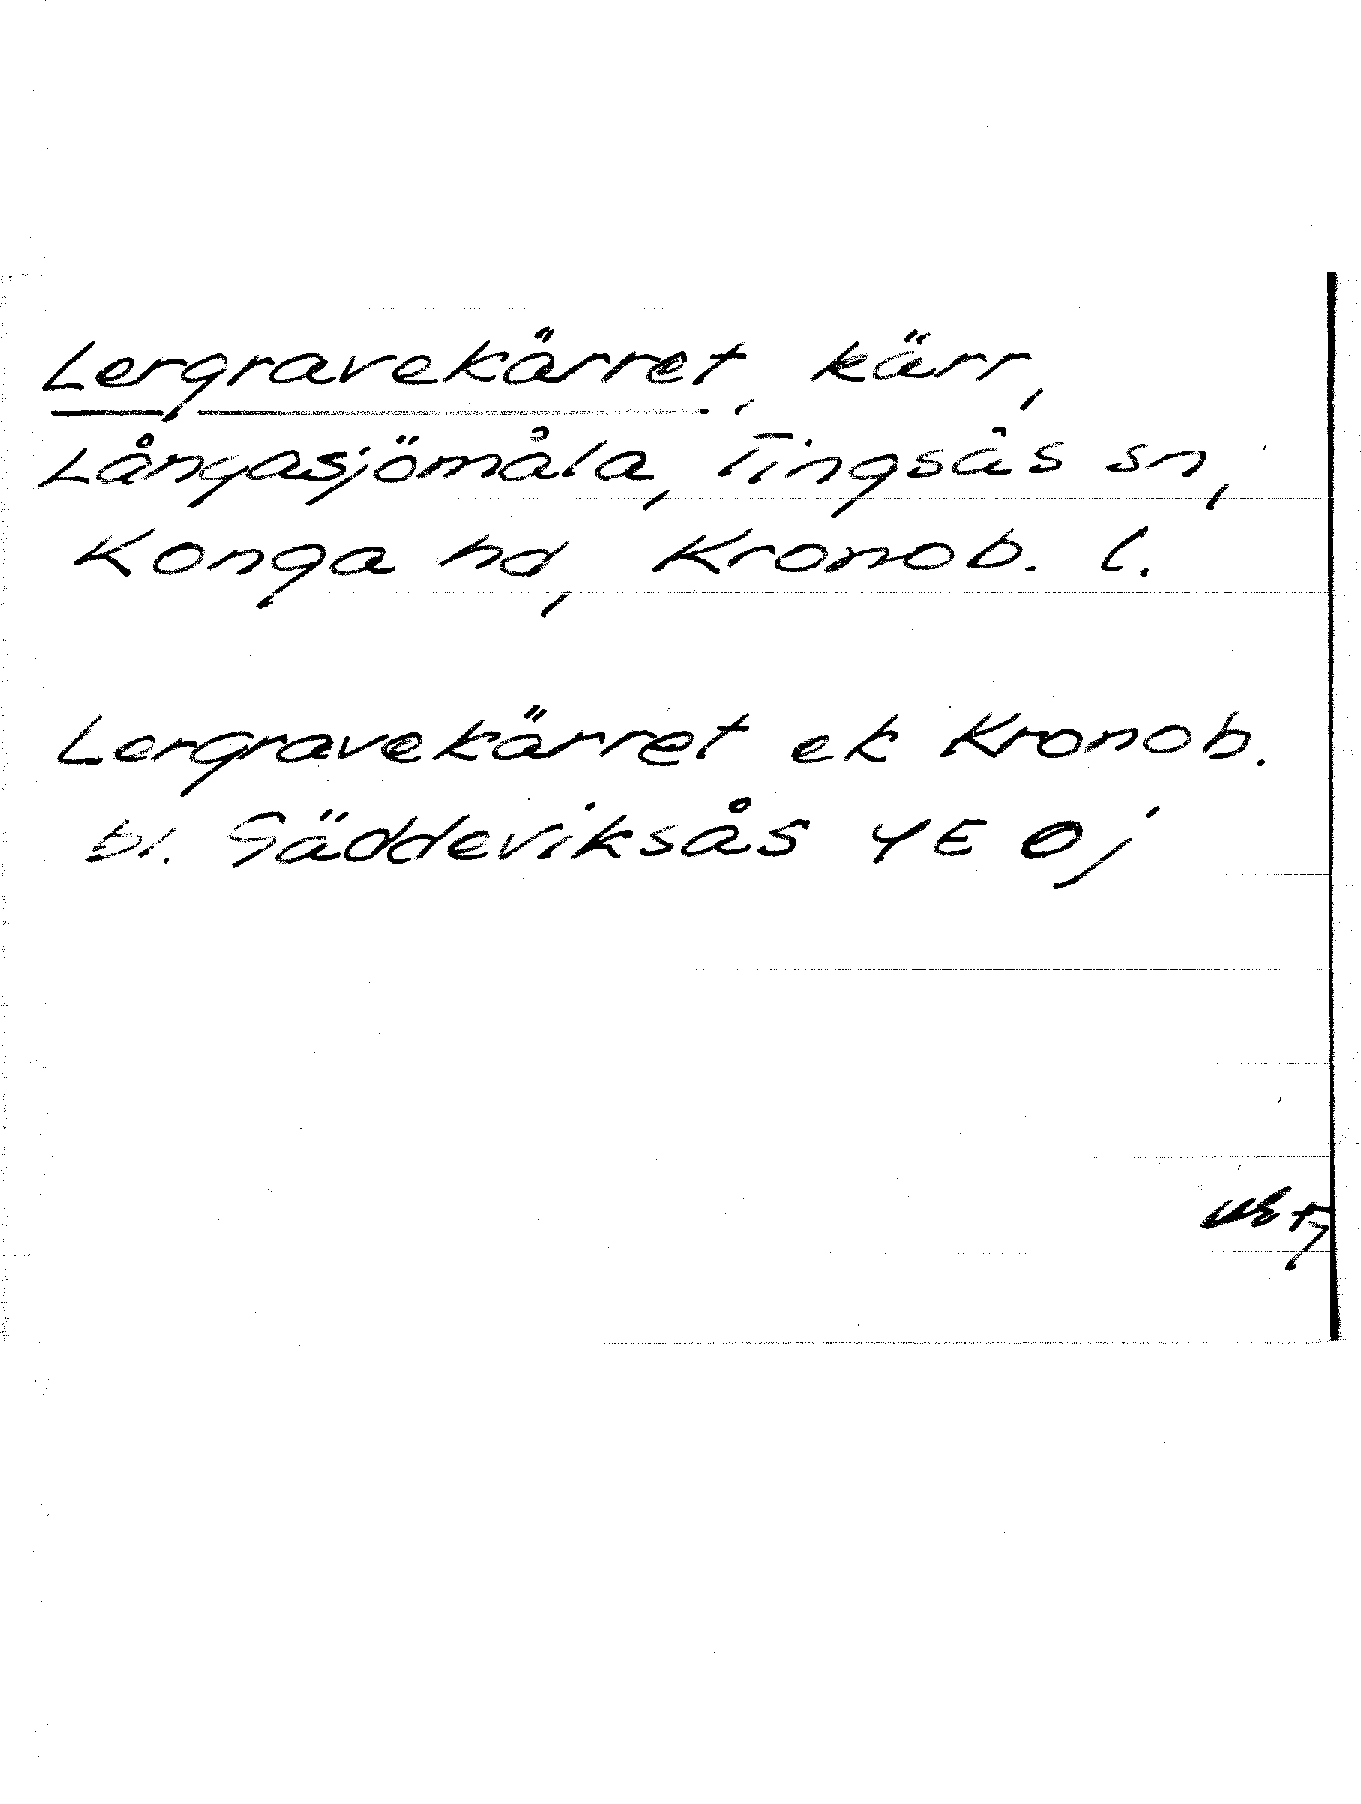 Lergravekärret, kärr,
Långasjömåla, Tingsås sn,
Konga hd, Kronob. l.
Lergravekärret ek Kronob.
bl. Gäddeviksås 4E 0j